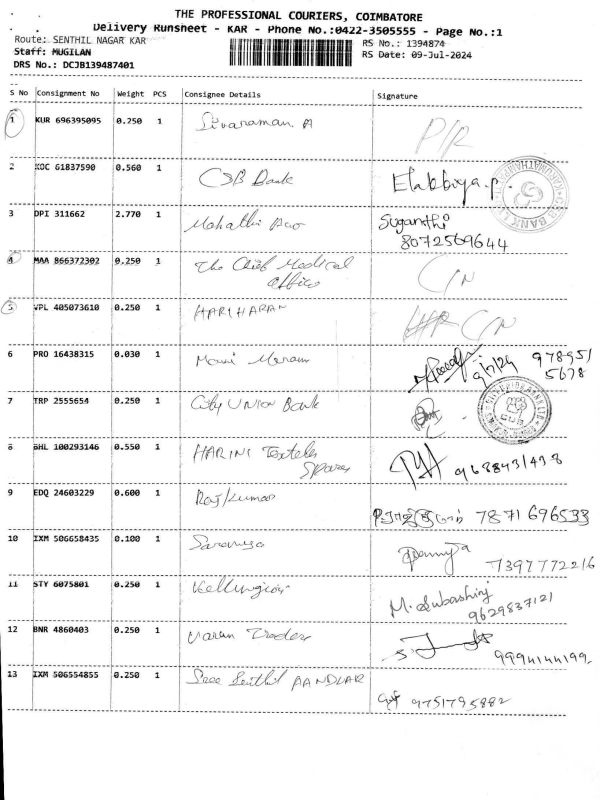 THE PROFESSIONAL COURIERS, COIMBATORE
Delivery Runsheet - KAR - Phone No.:0422-3505555 - Page No.:1
Route: SENTHIL NAGAR KAR RS No.: 1394874
Staff: MUGILAN RS Date: 09-Jul-2024
DRS No.: DCJB139487401
S No Consignment No Weight PCS Consignee Details Signature
1 KUR 696395095 0.250 1 Sivaraman. A P/R
2 KOC 61837590 0.560 1 CSB Bank Elakkiya.P.
3 DPI 311662 2.770 1 Suganthi
8072569644
4 MAA 866372302 0.250 1 The Chief Medical C/N
Office
5 VPL 405073610 0.250 1 HARIHARAN C/N
6 PRO 16438315 0.030 1 9/7/24 978951
5678
7 TRP 2555654 0.250 1 City UNION Bank
8 BHL 100293146 0.550 1 HARINI
9 EDQ 24603229 0.600 1 Rajkumar 7871696533
10 IXM 506658435 0.100 1 Saranya 7397772216
11 STY 6075801 0.250 1 M. Subashini
9629837121
12 BNR 4860403 0.250 1 Varan Traders
9994144199
13 IXM 506554855 0.250 1 Sree Senthil 9751795882